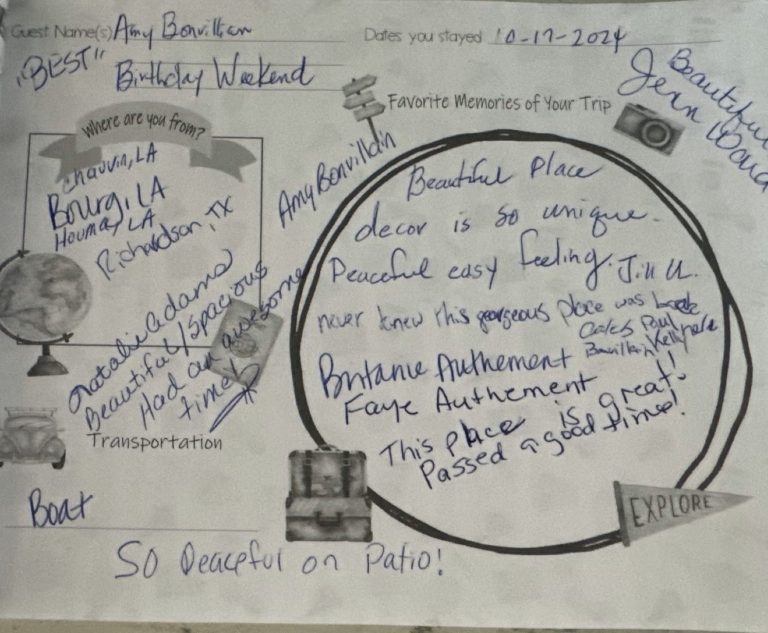 Guest Name(s) Amy Bonvillian
Dates you stayed 10-17-2024
"BEST" Birthday Weekend
Beautiful
Jean
Favorite Memories of Your Trip
Where are you from?
Chauvin, LA
Bourg, LA
Houma, LA
Richardson, TX
Natalie Adams
Beautiful/Spacious
Had an awesome
time!
Amy Bonvillain
Beautiful Place
decor is so unique.
Peaceful easy feeling. Jill U.
never knew this georgeous place was back
Paul
Bonvillain Kelly
Britanie Authement
Faye Authement
This place is great!
Passed a good time!
Transportation
Boat
EXPLORE
So Peaceful on Patio!